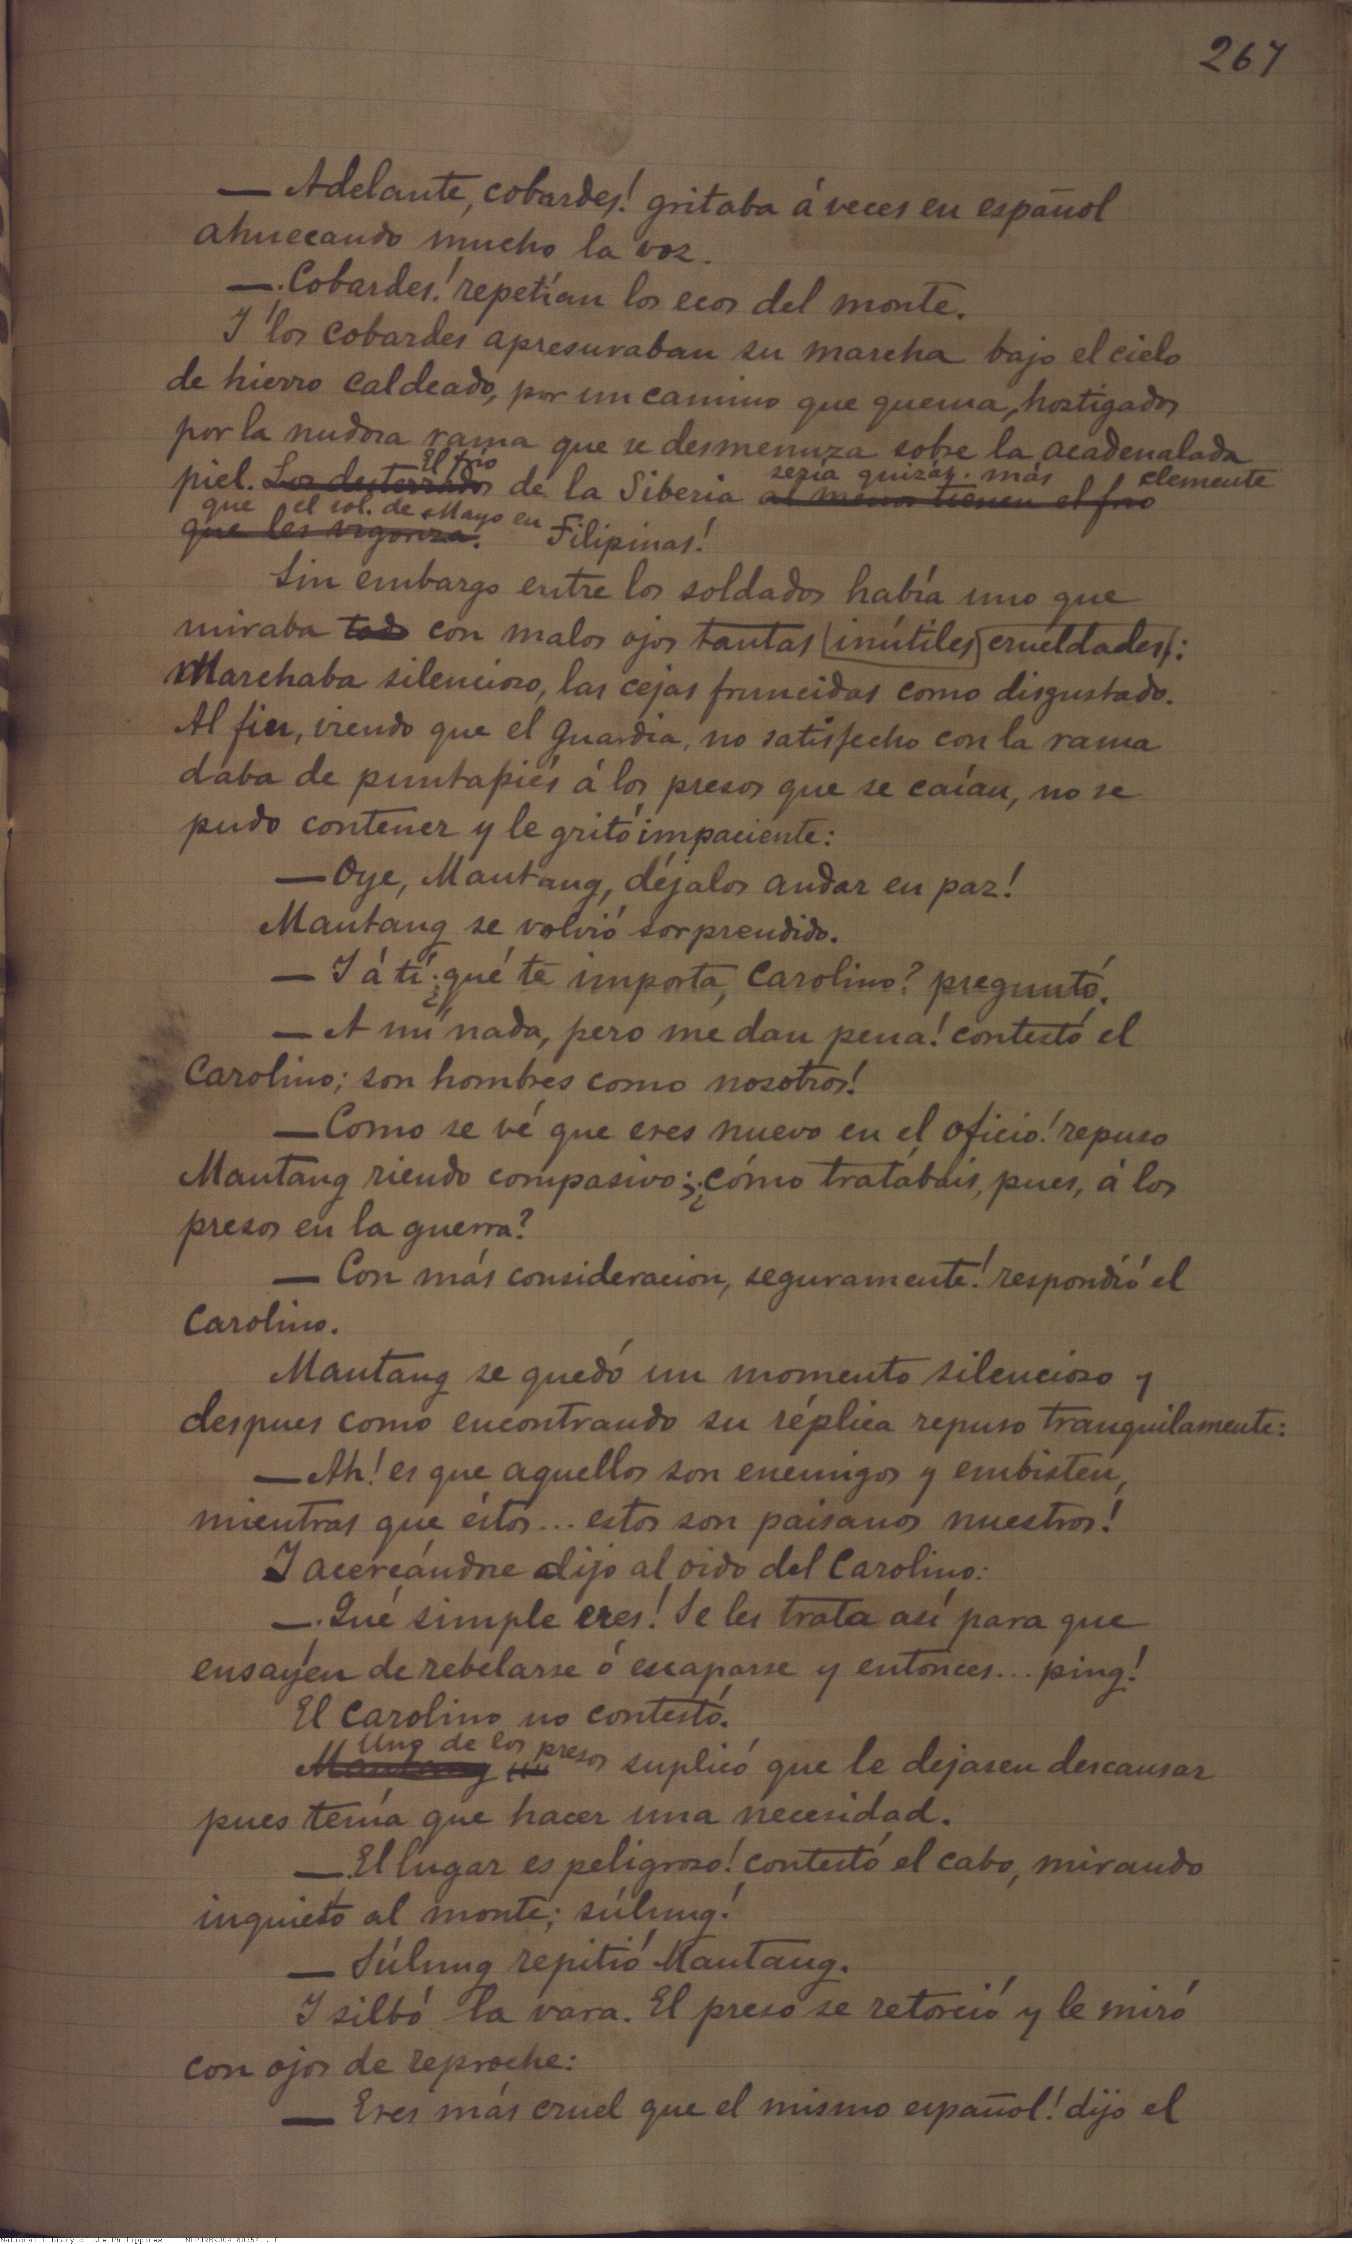 267
— Adelante, cobardes! gritaba á veces en español
ahuecando mucho la voz.
—. Cobardes! repetían los ecos del monte.
Y los cobardes apresuraban su marcha bajo el cielo
de hierro caldeado, por un camino que quema, hostigados
por la nudosa rama que se desmenuza sobre la acadenalada
El frio sería quizás más clemente
piel. Los desterrados de la Siberia al menos tienen el frio
que el sol de Mayo en
que les vigoriza. Filipinas!
Sin embargo entre los soldados había uno que
miraba todo con malos ojos tantas inútiles crueldades;:
Marchaba silencioso, las cejas fruncidas como disgustado.
Al fin, viendo que el Guardia, no satisfecho con la rama
daba de puntapiés á los presos que se caían, no se
pudo contener y le gritó impaciente:
— Oye, Mautang, déjalos andar en paz!
Mautang se volvió sorprendido.
— Y á tí ¿qué te importa, Carolino? preguntó.
— A mí nada, pero me dan pena! contestó el
Carolino; son hombres como nosotros!
— Como se vé que eres nuevo en el oficio! repuso
Mautang riendo compasivo; ¿cómo tratábais, pues, á los
presos en la guerra?
— Con más consideracion, seguramente! respondió el
Carolino.
Mautang se quedó un momento silencioso y
despues como encontrando su réplica repuso tranquilamente:
— Ah! es que aquellos son enemigos y embisten,
mientras que éstos... estos son paisanos nuestros!
Y acercándose dijo al oido del Carolino:
—. Qué simple eres! Se les trata así para que
ensayen de rebelarse ó escaparse y entonces... ping!
El Carolino no contestó.
Uno de los presos
Mautang suplicó que le dejasen descansar
pues tenía que hacer una necesidad.
—. El lugar es peligroso! contestó el cabo, mirando
inquieto al monte; súlung!
— Súlung repitió Mautang.
Y silbó la vara. El preso se retorció y le miró
con ojos de reproche:
— Eres más cruel que el mismo español! dijo el